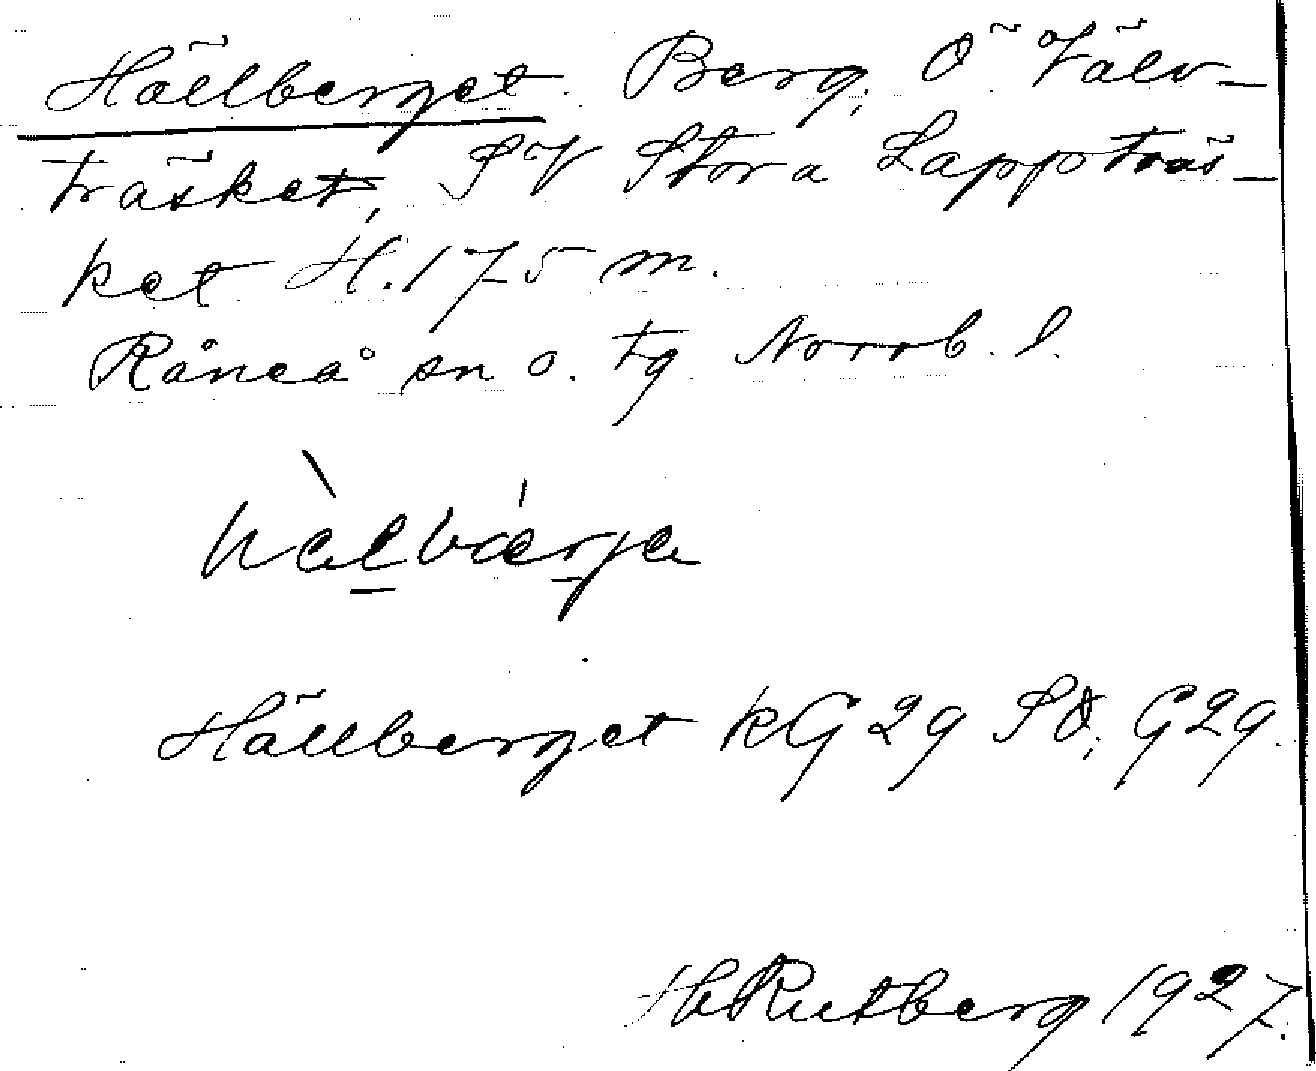 Hällberget. Berg, Ö Välv-
träsket, SV Stora Lappträs-
ket H. 175 m.
Råneå sn o. tg Norrb. l.
Hällberget KG 29 SO, G29.
H Rutberg 1927.